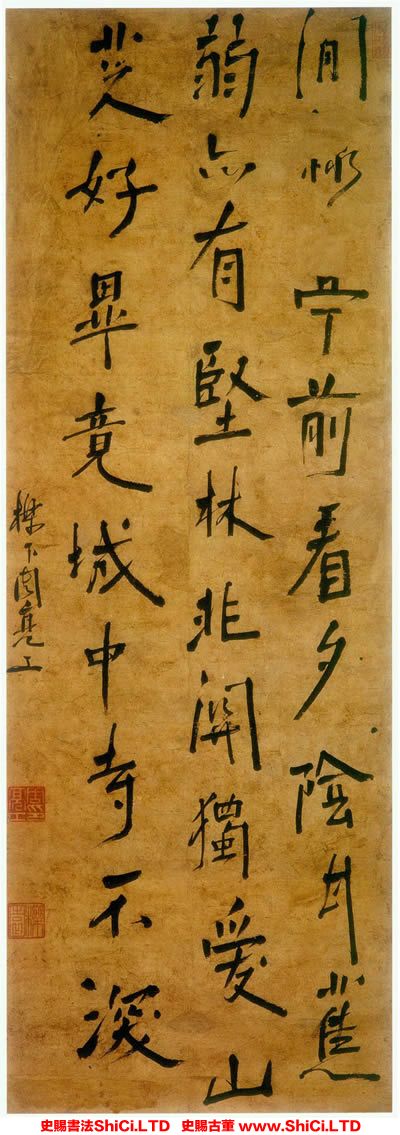 前看夕陰
弱亦有堅林非關獨愛山
好畢竟城中寺不深
樵下周亮工
史賜書法ShiCi.LTD 史賜古董 www.ShiCi.LTD